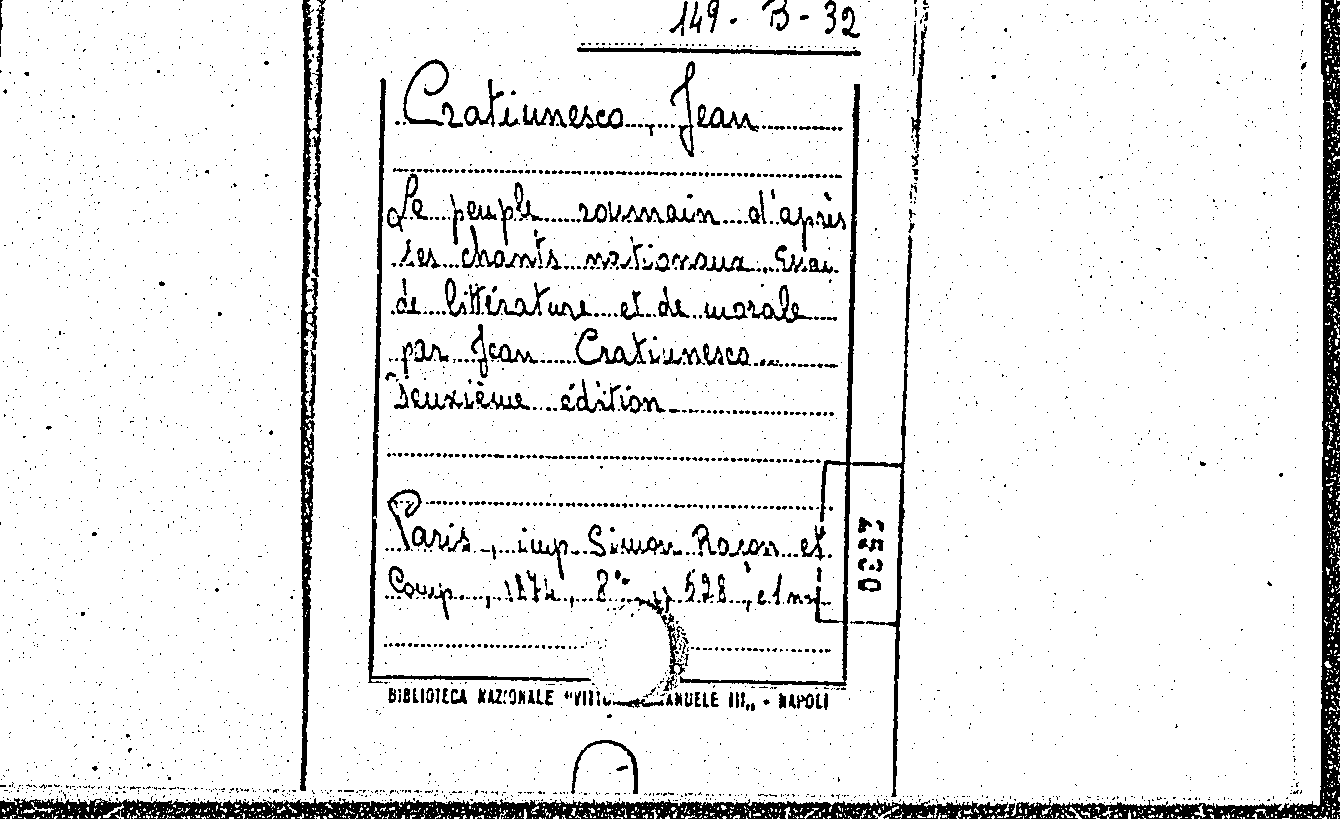 149 - B - 32
Cratiunesco, Jean
Le peuple roumain d'après
ses chants nationaux. Essai
de littérature et de morale
par Jean Cratiunesco...
Deuxième édition
Paris, imp. Simon Raçon et
Comp., 1874, 8°, 528,
BIBLIOTECA NAZIONALE "VITTO ANUELE III„ - NAPOLI